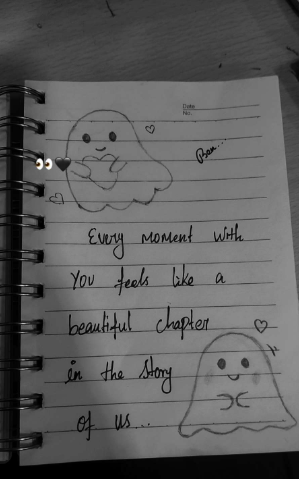 Date
No.
Every moment with
you feels like a
beautiful chapter
in the story
of us...